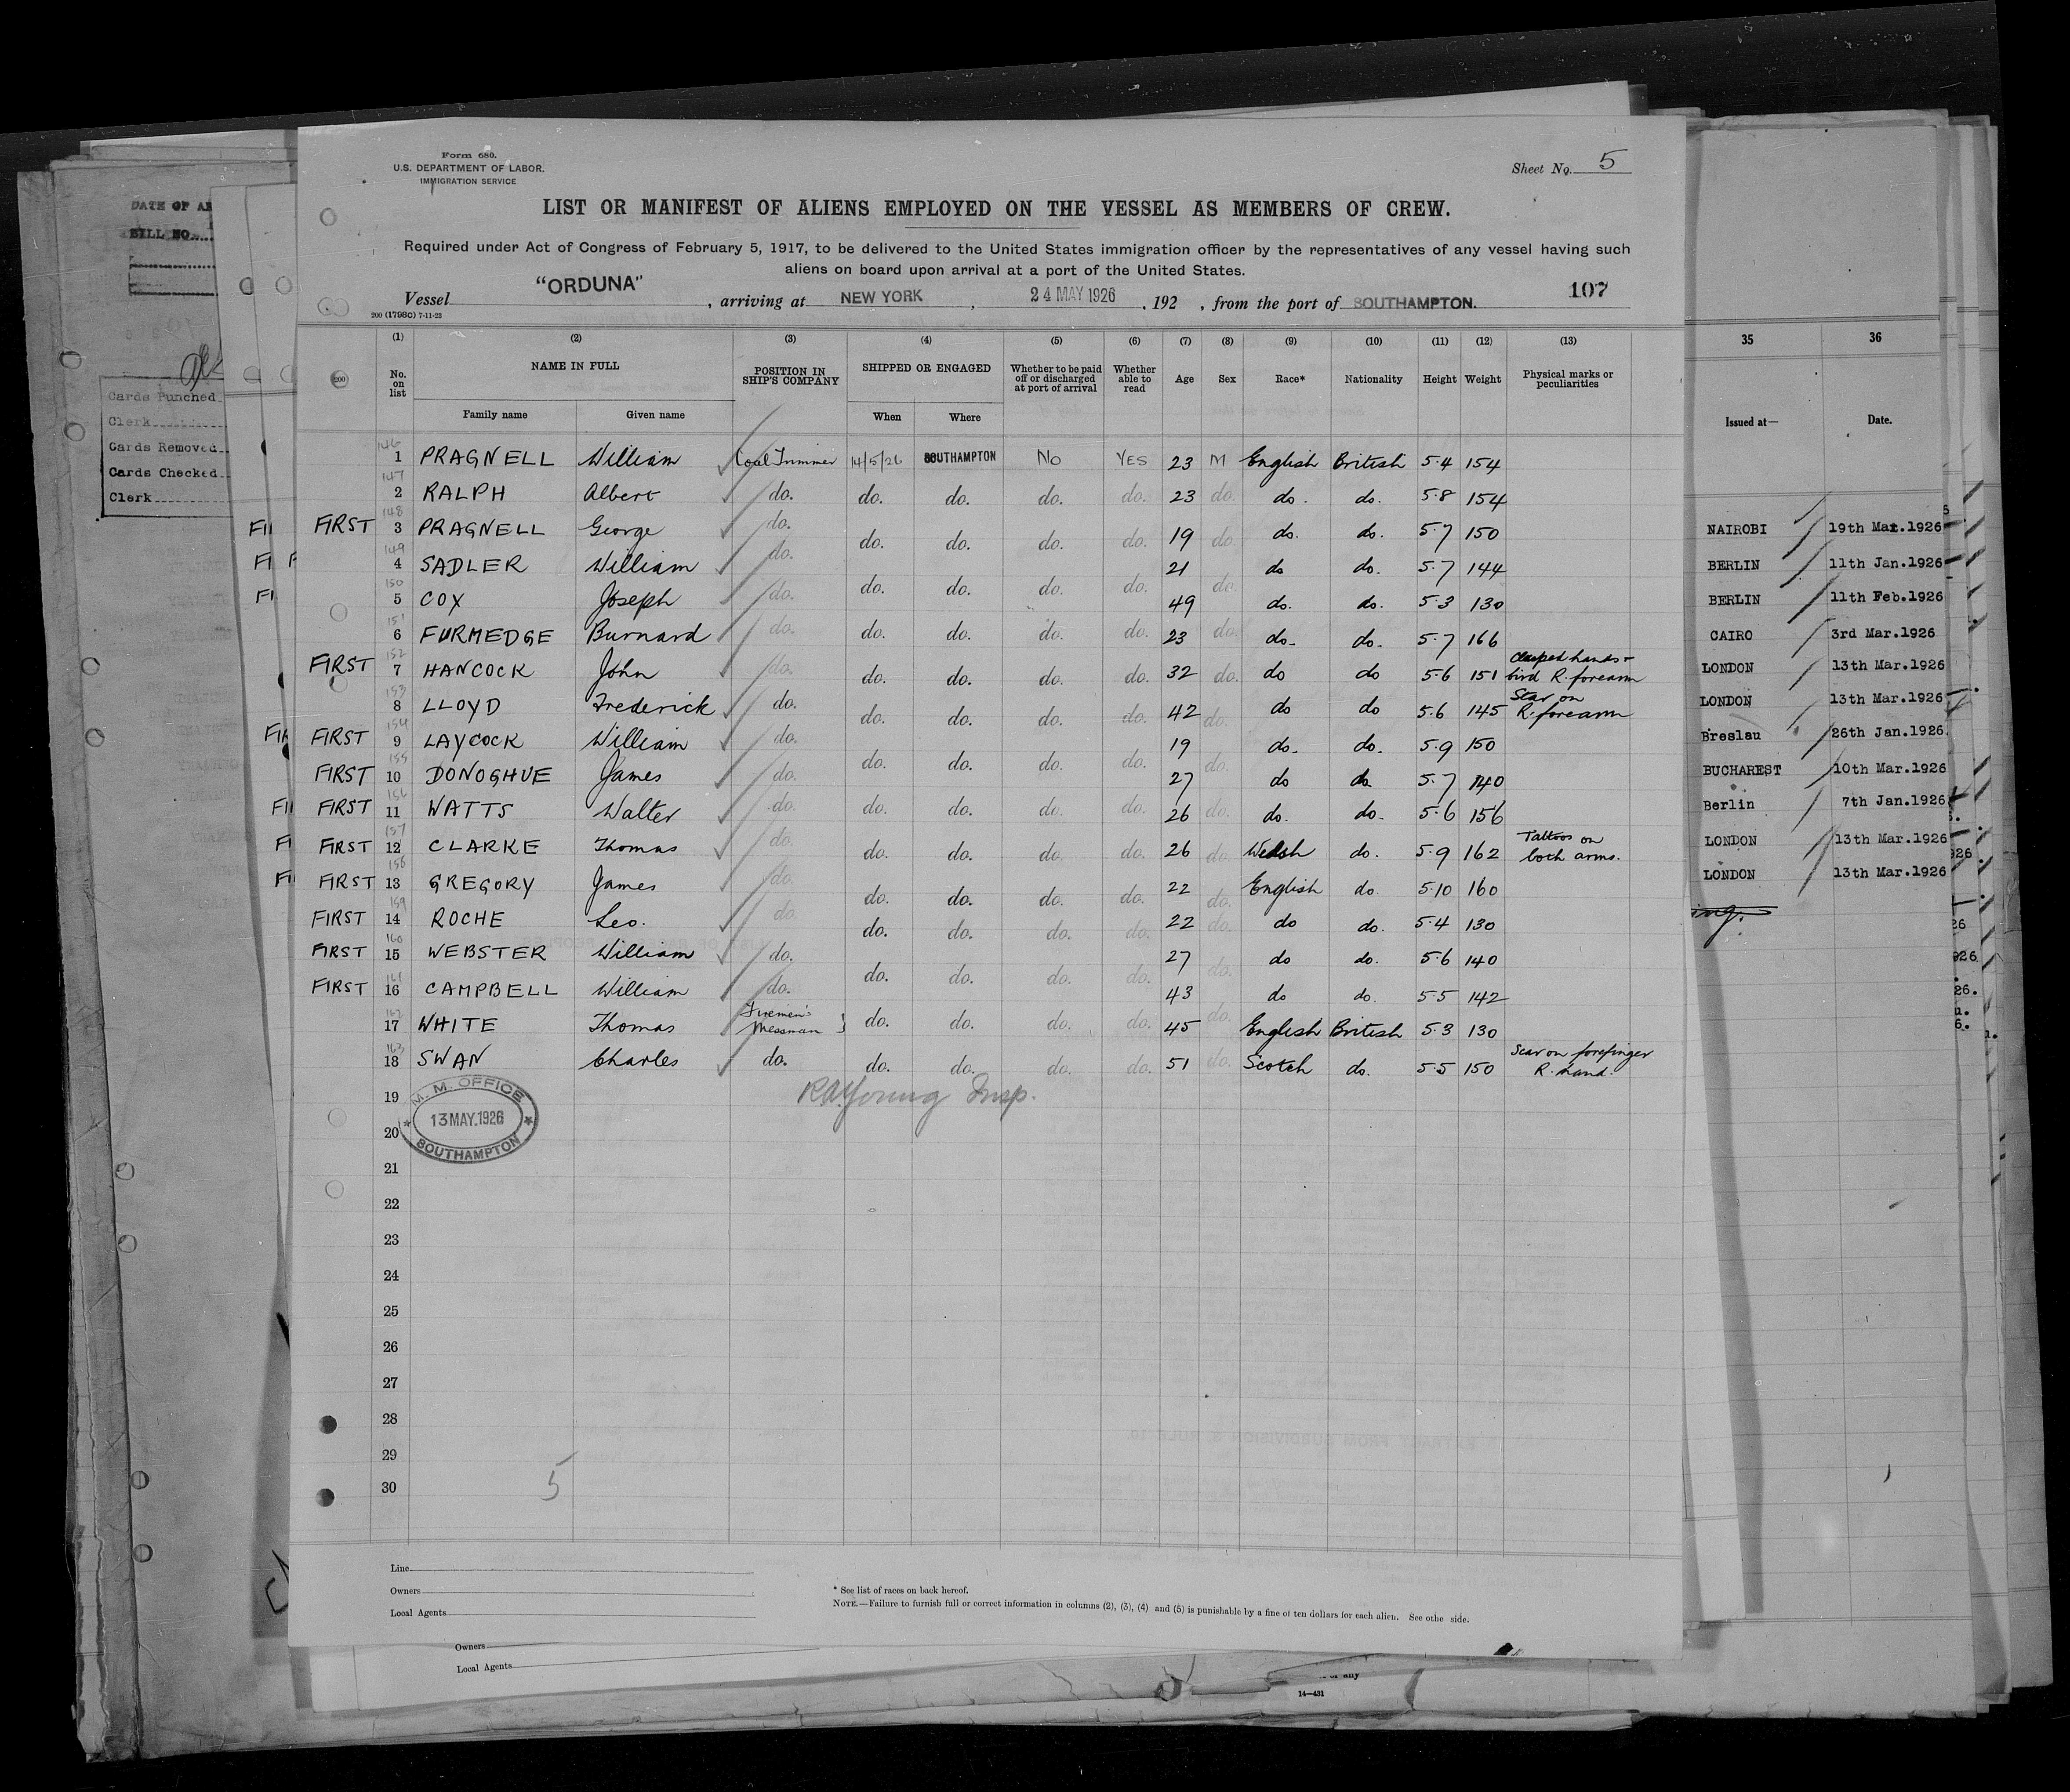 Form 680.
U.S. DEPARTMENT OF LABOR.
IMMIGRATION SERVICE
Sheet No. 5
LIST OR MANIFEST OF ALIENS EMPLOYED ON THE VESSEL AS MEMBERS OF CREW.
Required under Act of Congress of February 5, 1917, to be delivered to the United States immigration officer by the representatives of any vessel having such
aliens on board upon arrival at a port of the United States.
Vessel "ORDUNA", arriving at NEW YORK, 24 MAY 1926, 192 , from the port of SOUTHAMPTON. 107
200 (1798C) 7-11-23
(1) (2) (3) (4) (5) (6) (7) (8) (9) (10) (11) (12) (13)
No. on list NAME IN FULL POSITION IN SHIP'S COMPANY SHIPPED OR ENGAGED Whether to be paid off or discharged at port of arrival Whether able to read Age Sex Race* Nationality Height Weight Physical marks or peculiarities
Family name Given name When Where
146 1 PRAGNELL William Coal Trimmer 14/5/26 SOUTHAMPTON No YES 23 M English British 5.4 154
147 2 RALPH Albert do. do. do. do. do. 23 do. do. do. 5.8 154
FIRST 148 3 PRAGNELL George do. do. do. do. do. 19 do. do. do. 5.7 150
149 4 SADLER William do. 21 do do. 5.7 144
150 5 COX Joseph do. do. do. do. do. 49 do. do. do. 5.3 130
151 6 FURMEDGE Burnard do. do. do. do. do. 23 do. do. do. 5.7 166
FIRST 152 7 HANCOCK John do. do. do. do. do. 32 do. do do 5.6 151 Clasped hands + bird R. forearm
153 8 LLOYD Frederick do. do. do. do. do. 42 do. do do 5.6 145 Scar on R. forearm
FIRST 154 9 LAYCOCK William do. 19 do. do. 5.9 150
FIRST 155 10 DONOGHUE James do. do. do. do. do. 27 do. do do 5.7 140
FIRST 156 11 WATTS Walter do. do. do. do. do. 26 do. do. do. 5.6 156
FIRST 157 12 CLARKE Thomas do. do. do. do. do. 26 do. Welsh do. 5.9 162 Tattoos on both arms.
FIRST 158 13 GREGORY James do. do. do. do. do. 22 do. English do. 5.10 160
FIRST 159 14 ROCHE Leo. do. do. do. do. do. 22 do. do do. 5.4 130
FIRST 160 15 WEBSTER William do. 27 do do. 5.6 140
FIRST 161 16 CAMPBELL William do. do. do. do. do. 43 do. do do. 5.5 142
162 17 WHITE Thomas Firemen's Messman } do. do. do. do. 45 do. English British 5.3 130
163 18 SWAN Charles do. do. do. do. do. 51 do. Scotch do. 5.5 150 Scar on forefinger R. hand.
19
RA Young Insp.
M. M. OFFICE
13 MAY.1926
SOUTHAMPTON
20
21
22
23
24
25
26
27
28
29
30
5
Line
Owners
Local Agents
* See list of races on back hereof.
NOTE.—Failure to furnish full or correct information in columns (2), (3), (4) and (5) is punishable by a fine of ten dollars for each alien. See othe side.
Owners
Local Agents
14—431
DATE OF
BILL NO.
Cards Punched
Clerk
Cards Removed
Cards Checked
Clerk
35 36
Issued at— Date.
NAIROBI 19th Mar.1926
BERLIN 11th Jan.1926
BERLIN 11th Feb.1926
CAIRO 3rd Mar.1926
LONDON 13th Mar.1926
LONDON 13th Mar.1926
Breslau 26th Jan.1926.
BUCHAREST 10th Mar.1926
Berlin 7th Jan.1926
LONDON 13th Mar.1926
LONDON 13th Mar.1926